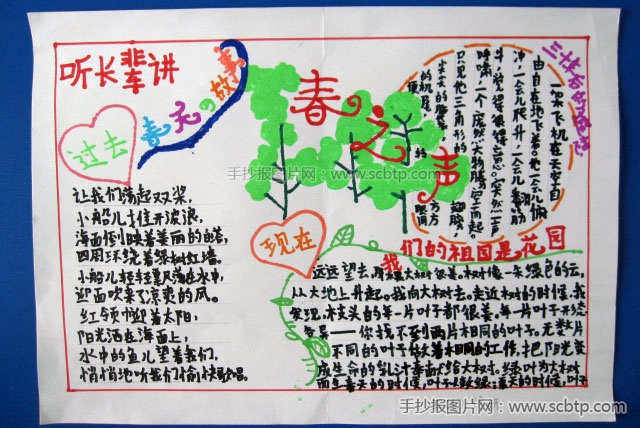 听长辈讲
春天的故事
过去
让我们荡起双桨,
小船儿推开波浪,
海面倒映着美丽的白塔,
四周环绕着绿树红墙.
小船儿轻轻飘荡在水中,
迎面吹来了凉爽的风.
红领巾迎着太阳,
阳光洒在海面上,
水中的鱼儿望着我们,
悄悄地听我们愉快歌唱.
春之声
现在
三十年后的
一架飞机在天空自
由自在地飞着.它一会儿俯
冲,一会儿爬升,一会儿翻筋
斗,
只见他三角形的
手抄报图片网:www.scbtp.com
我们的祖国是花园
远远望去,那棵大树很美.树像一朵绿色的云,
从大地上升起.我向大树走去.走近树的时候,我
发现,枝头的每一片叶子都很美.每一片叶子形态
各异——你找不到两片相同的叶子.无数片
不同的叶子做着相同的工作,把阳光变
成生命的乳汁奉献给大树.绿叶为大树
而生.春天的时候,叶子嫩绿;夏天的时候,叶子
手抄报图片网:www.scbtp.com